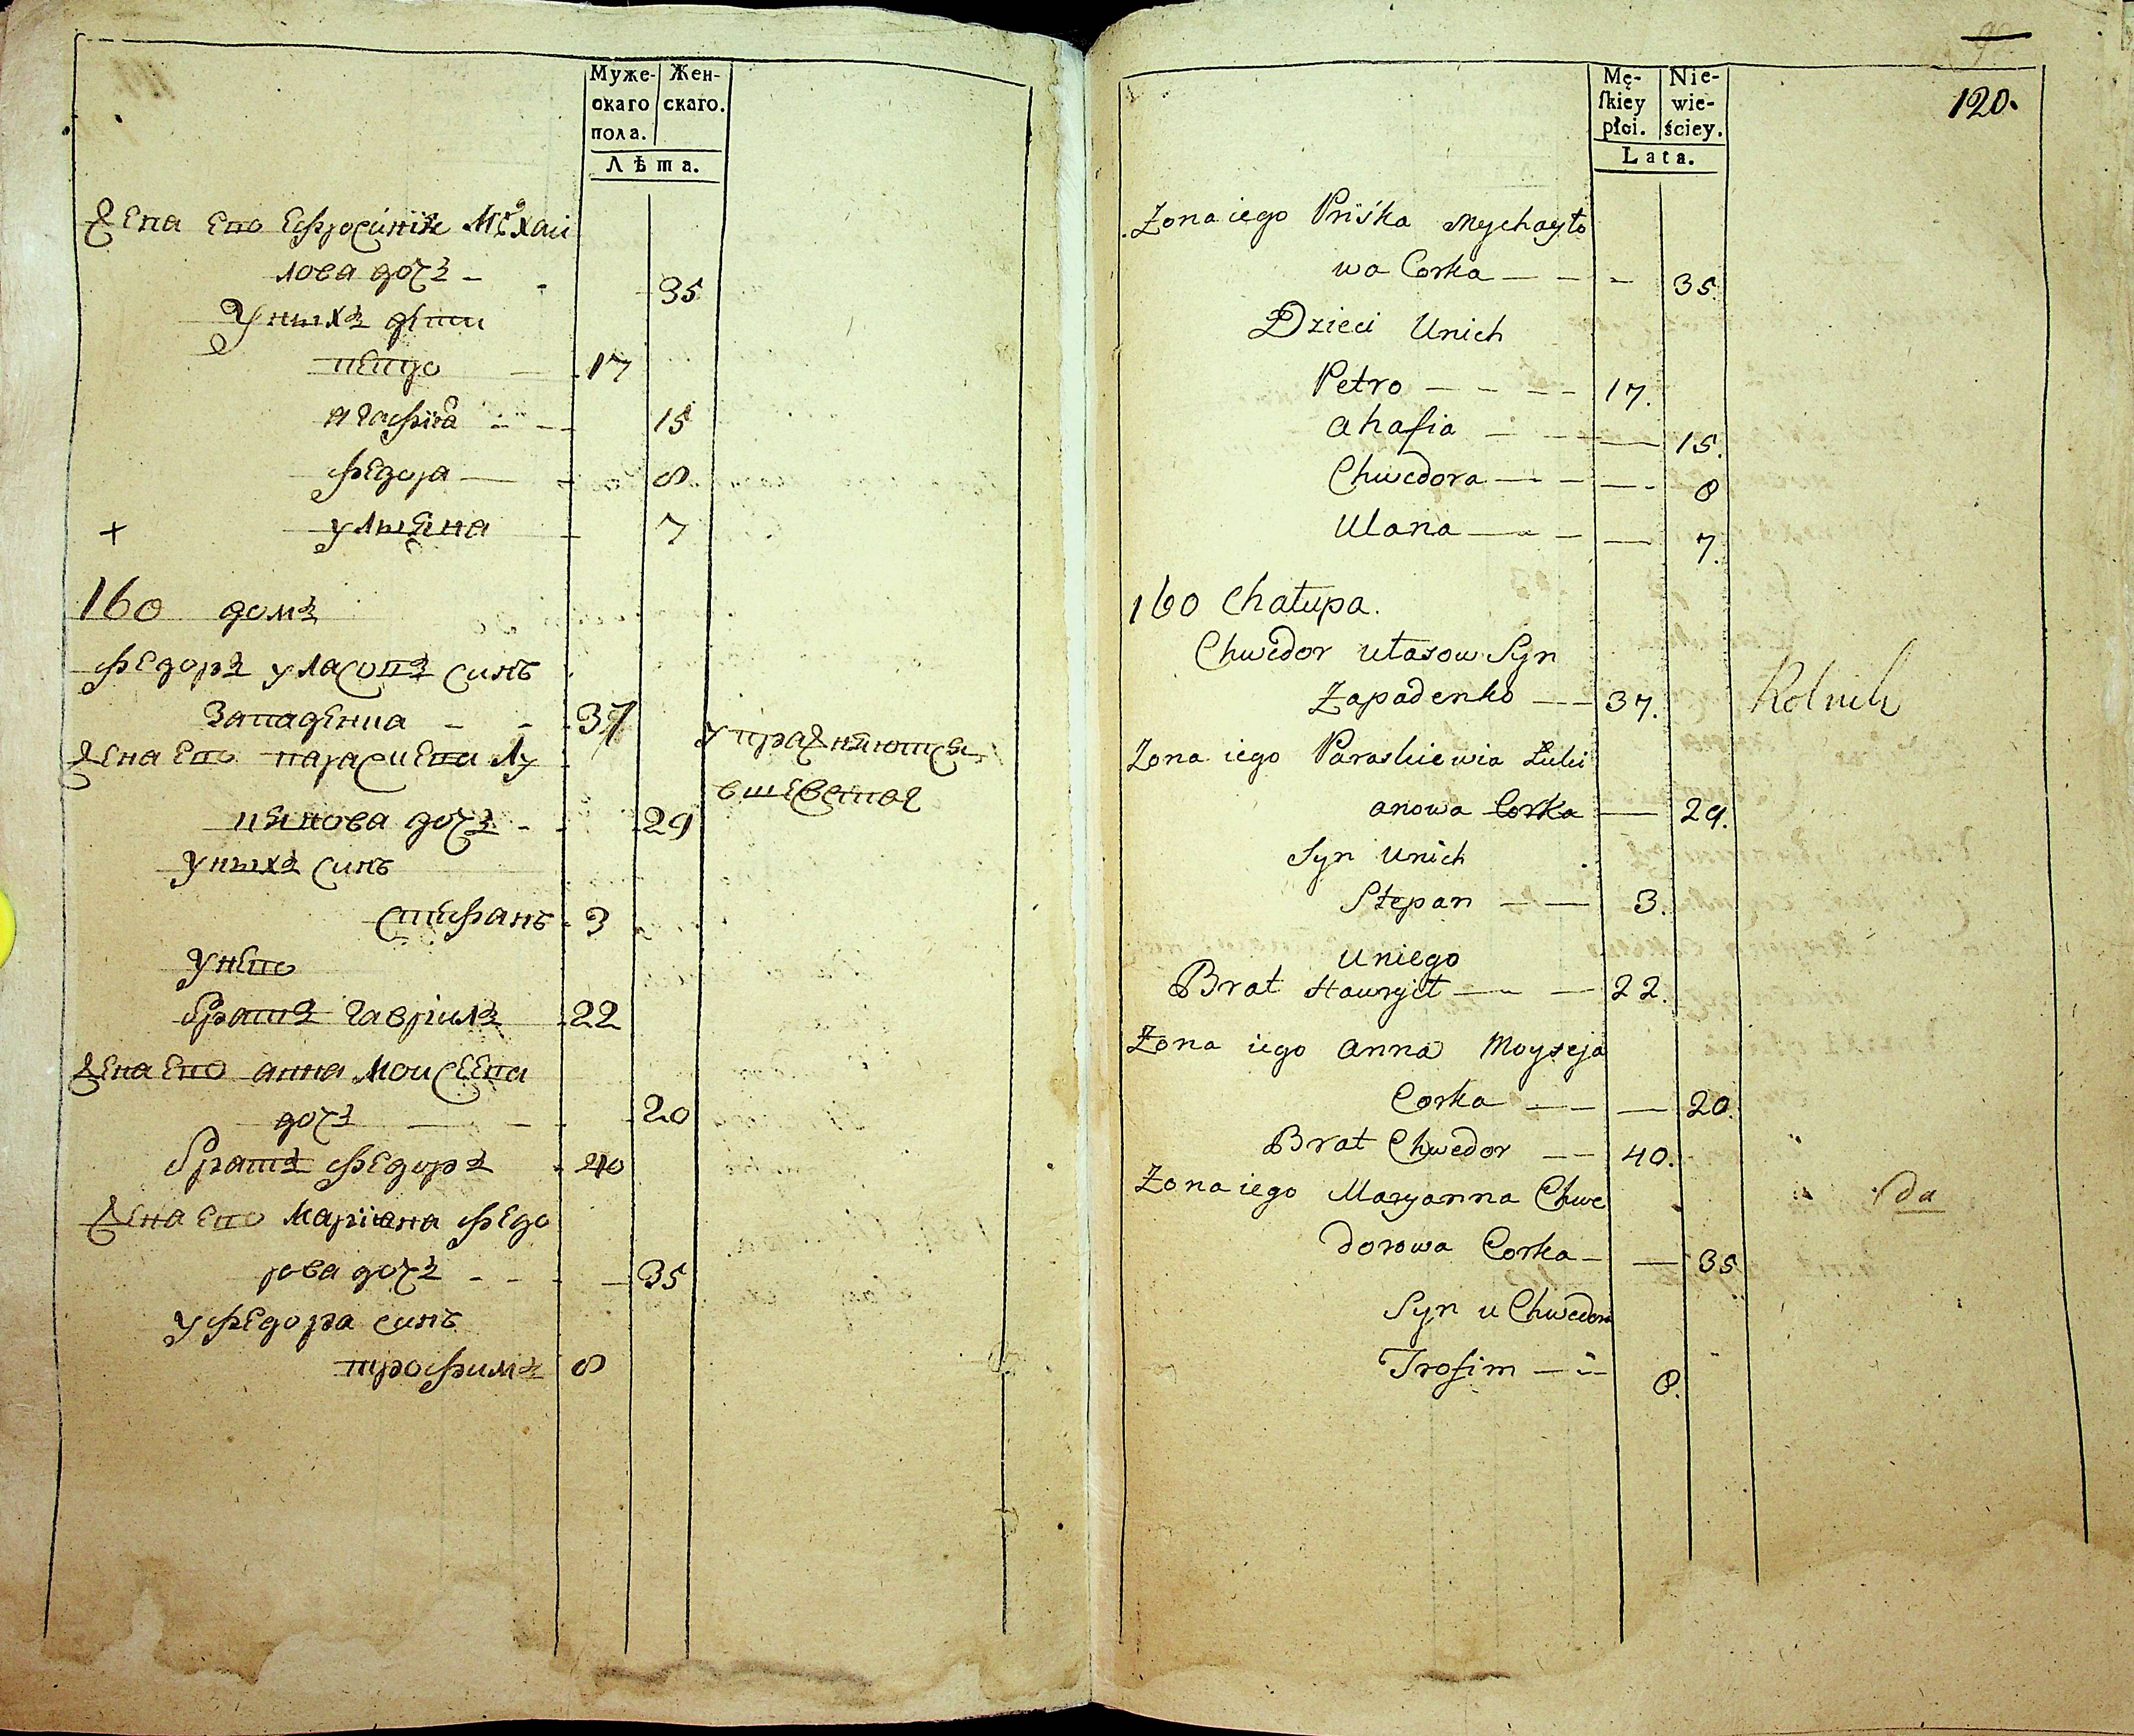 Муже-
скаго
пола.
Жен-
скаго.
Лѣта.
Жена его Ефросиния Михаи
лова дочъ
35
Унихъ дети
петро 17
Агафия 15
Федора 8
+ улияна 7
160 домъ
Федоръ уласовъ синъ
Западенка 37
Жена его параскева Лу
киянова дочъ 29
упражняются
Унихъ синъ
стефанъ 3
Унего
братъ Гавриилъ 22
Жена его анна Моисеева
дочъ 20
братъ Федоръ 40
Жена его Мариана Федо
рова дочъ 35
у Федора синъ
трофимъ 8
120.
Mę-
ſkiey
płci.
Nie-
wie-
ściey.
Lata.
Żona iego Priśka Mychayło
wa Corka 35.
Dzieci Unich
Petro 17.
Ahafia 15.
Chwedora 8
Ulana 7.
160 Chałupa.
Chwedor Ułasow Syn
Zapadenko 37. Rolnik
Żona iego Paraskiewia Łuki
anowa Corka 29.
Syn Unich
Stepan 3.
Uniego
Brat Hawryło 22.
Żona iego Anna Moyseja
Corka 20.
Brat Chwedor 40.
Żona iego Maryanna Chwe
dorowa Corka 35
Syn u Chwedora
Trofim 8.